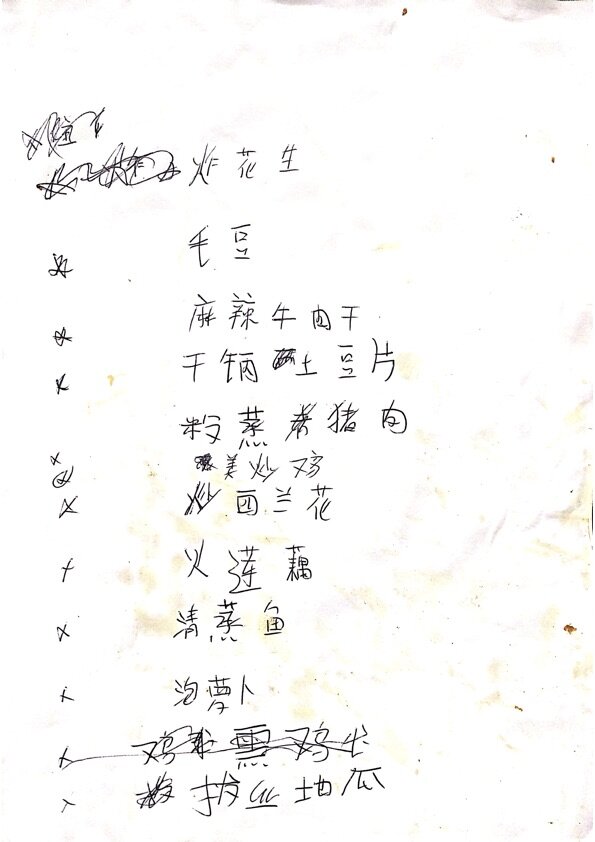 炸花生
毛豆
麻辣牛肉干
干锅土豆片
粉蒸猪肉
美炒鸡
炒西兰花
火莲藕
清蒸鱼
泡萝卜
鸡熏鸡
拔丝地瓜